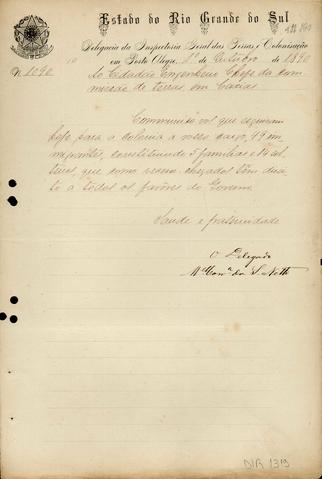 Estado do Rio Grande do Sul
Delegacia da Inspectoria Geral das Terras e Colonisação
em Porto Alegre, 1º de Outubro de 1890
Nº 1090
Ao Cidadão Engenheiro Chefe da Com
missão de terras em Caxias
Communico vos que seguiram
hoje para a colonia a vosso cargo, 19 im
migrantes, constituindo 5 familias e
que como recem chegados têm direi
to a todos os favores do Governo
Saude e fraternidade
O Delegado
DIR 1319